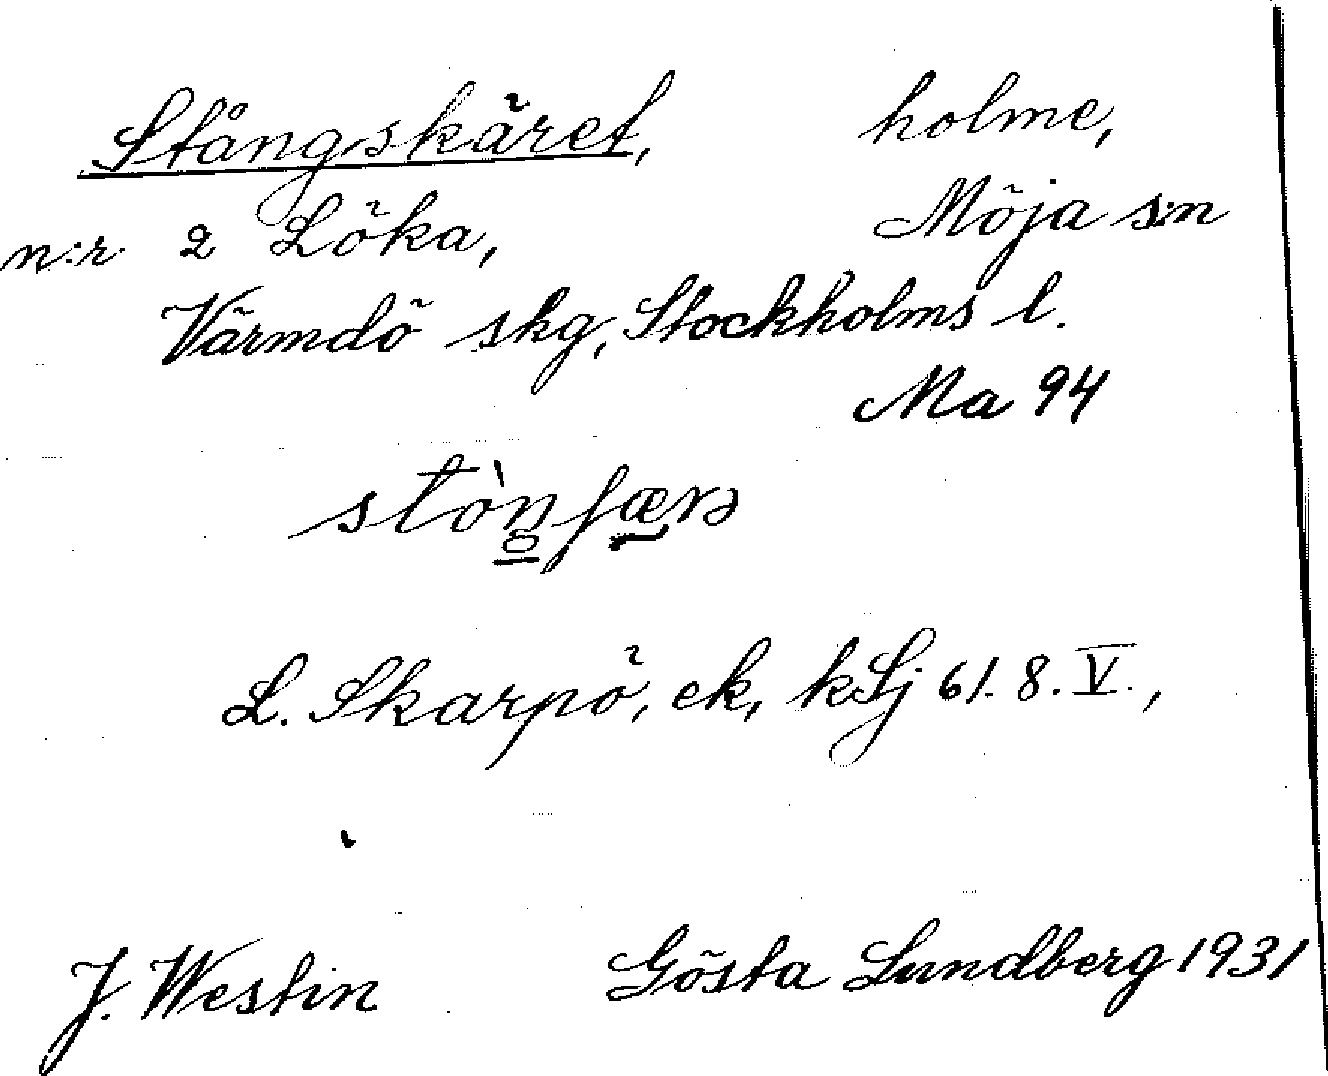 Stångskäret, holme,
n:r 2 Löka, Möja s:n
Värmdö skg, Stockholms l.
Ma 94
L. Skarpö, ek, kLj 61. 8. V.,
J. Westin Gösta Lundberg 1931